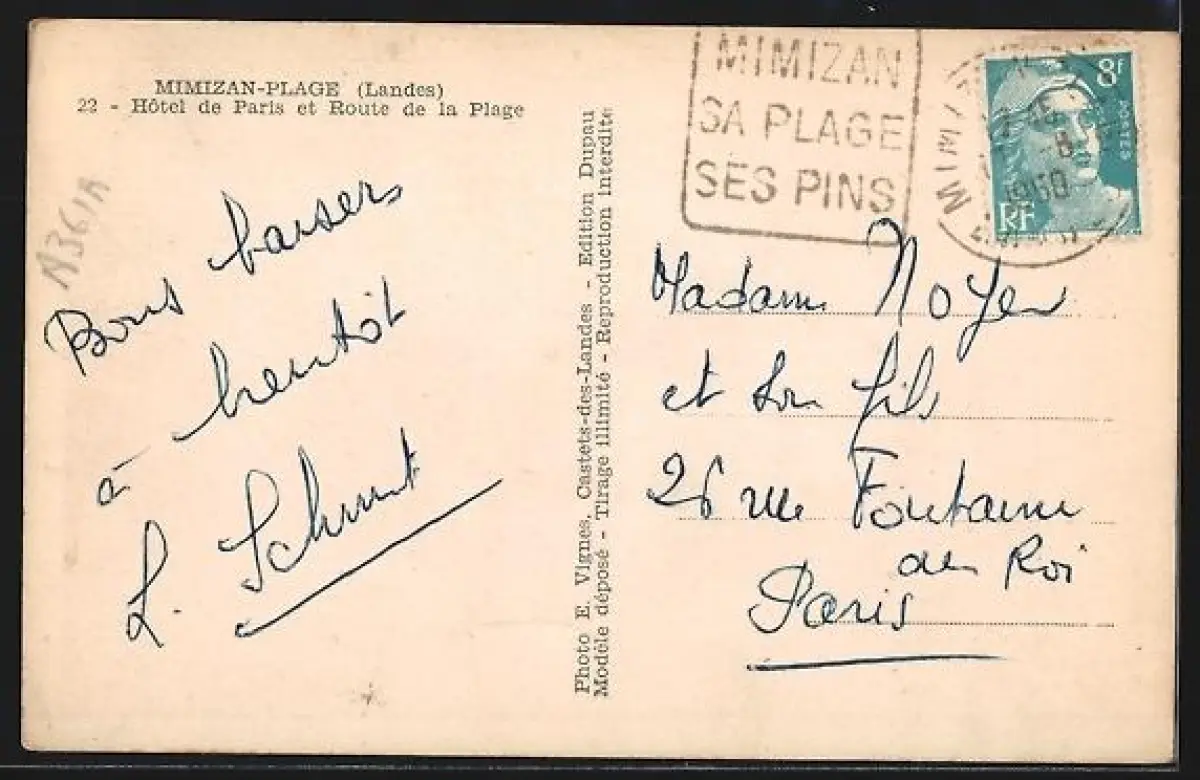 MIMIZAN-PLAGE (Landes)
22 - Hôtel de Paris et Route de la Plage
N361A
Bons baisers
à bientôt
L. Schmit
Photo E. Vignes, Castets-des-Landes - Edition Dupau
Modèle déposé - Tirage illimité - Reproduction interdite
MIMIZAN
SA PLAGE
SES PINS
MIMIZAN
1950
8f
POSTES
RF
Madame Noyer
et son fils
26 rue Fontaine
au Roi
Paris